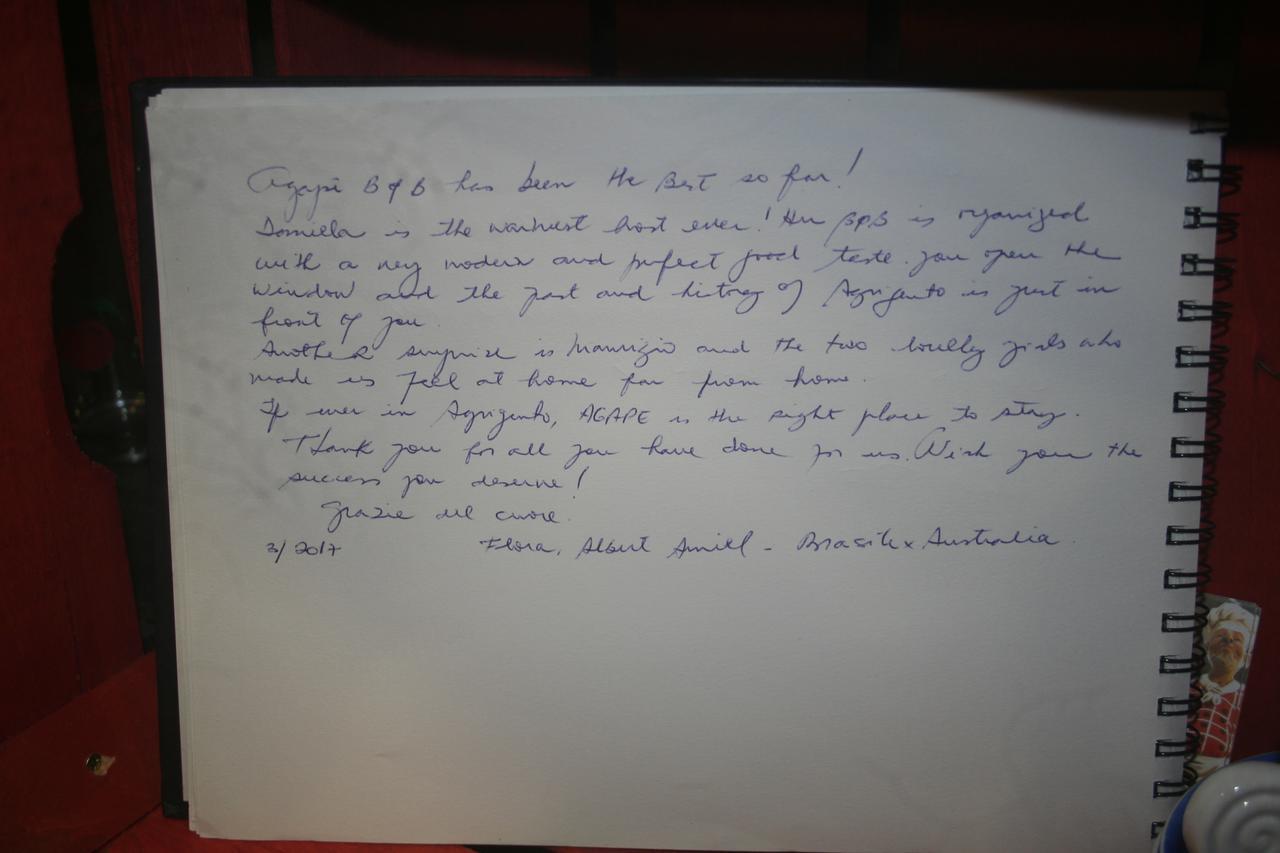 Agape B&B has been the Best so far!
Daniella is the warmest host ever! Her B&B is organized
with a very modern and perfect good taste. you open the
window and the past and history of Agrigento is just in
front of you.
Another surprise is Maurizio and the two lovelly girls who
made us feel at home far from home.
If ever in Agrigento, AGAPE is the right place to stay.
Thank you for all you have done for us. Wish you the
success you deserve!
Grazie del cuore.
3/2017 Flora, Albert - Brasil x Australia.